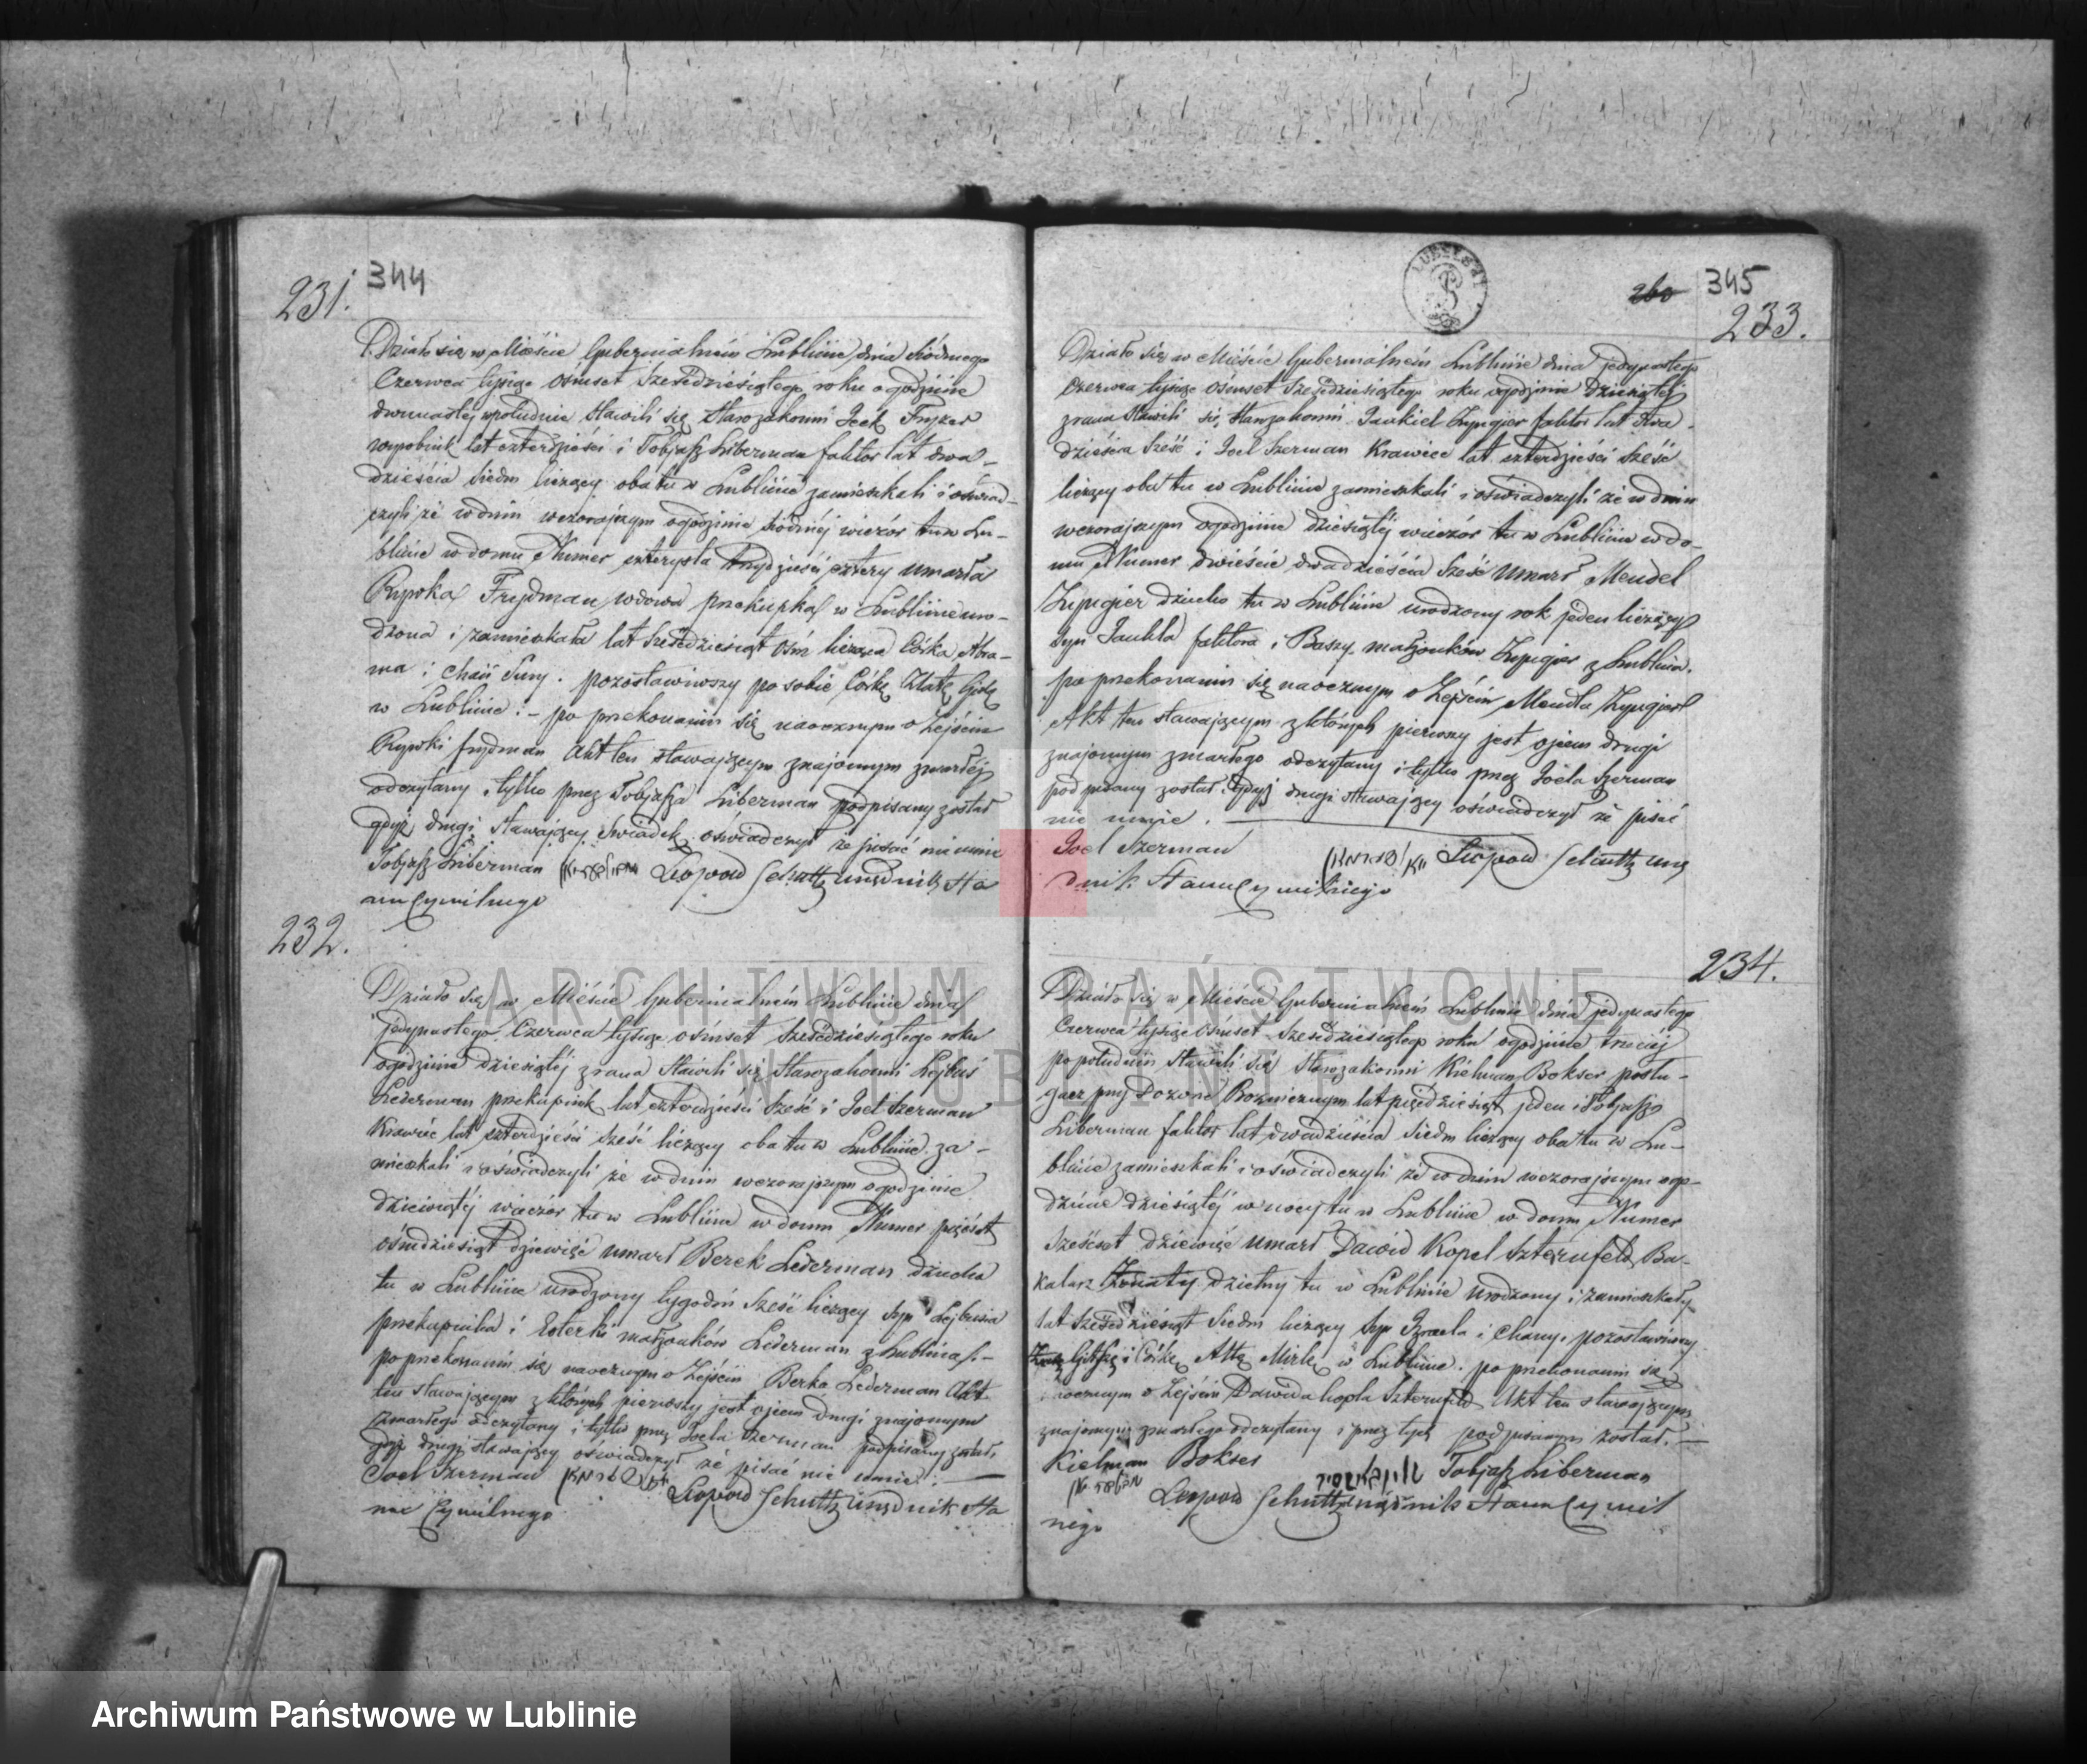 344
231.
Działo się w Mieście Gubernialném Lublinie dnia siódmego
Czerwca tysiąc ośmset sześćdziesiątego roku o godzinie
dwunastéj w południe stawili się starozakonni Icek Fryzer
wyrobnik lat czterdzieści i Tobjasz Liberman faktor lat dwa-
dzieścia siedm liczący oba tu w Lublinie zamieszkali i oświad-
czyli że w dniu wczorajszym o godzinie siódméj wieczór tu w Lu-
blinie w domu Numer czterysta trzydzieści cztery umarła
Rywka Frydman wdowa przekupka w Lublinie uro-
dzona i zamieszkała lat sześćdziesiąt ośm licząca Córka Abra-
ma i Chai Sury. pozostawiwszy po sobie Córkę Złatę Gitlę
w Lublinie. – po przekonaniu się naocznym o zejściu
Rywki Frydman Akt ten stawającym znajomym zmarłéj
odczytany i tylko przez Tobjasza Liberman podpisany został
gdyż drugi stawający świadek oświadczył że pisać nie umie
Tobjasz Liberman Leopold Schultz urzędnik Sta
nu Cywilnego
232.
Działo się w Mieście Gubernialném Lublinie dnia
jedynastego Czerwca tysiąc ośmset sześćdziesiątego roku
o godzinie dziesiątéj z rana stawili się starozakonni Lejbuś
Lederman przekupnik lat czterdzieści sześć i Joel Szerman
Krawiec lat czterdzieści sześć liczący oba tu w Lublinie za-
mieszkali i oświadczyli że w dniu wczorajszym o godzinie
dziewiątéj wieczór tu w Lublinie w domu Numer pięćset
ośmdziesiąt dziewięć umarł Berek Lederman dziecko
tu w Lublinie urodzony tygodni sześć liczący syn Lejbusia
przekupnika i Esterki małżonków Lederman z Lublina. –
po przekonaniu się naocznym o zejściu Berka Lederman Akt
ten stawającym z których pierwszy jest ojcem drugi znajomym
zmarłego odczytany i tylko przez Joela Szerman podpisany został,
gdyż drugi stawający oświadczył że pisać nie umie. –
Joel Szerman Leopold Schultz urzędnik Sta
nu Cywilnego
LUBELSKI
260 345
233.
Działo się w Mieście Gubernialném Lublinie dnia jedynastego
Czerwca tysiąc ośmset sześćdziesiątego roku o godzinie dziesiątéj
z rana stawili się starozakonni Jankiel Zyngier faktor lat dwa
dzieścia sześć i Joel Szerman Krawiec lat czterdzieści sześć
liczący oba tu w Lublinie zamieszkali i oświadczyli że w dniu
wczorajszym o godzinie dziesiątéj wieczór tu w Lublinie w do-
mu Numer dwieście dwadzieścia sześć umarł Mendel
Zyngier dziecko tu w Lublinie urodzony rok jeden liczący
syn Jankla faktora i Baszy małżonków Zyngier z Lublina.
po przekonaniu się naocznym o zejściu Mendla Zyngier
Akt ten stawającym z których pierwszy jest ojcem drugi
znajomym zmarłego odczytany i tylko przez Joela Szerman
podpisany został. gdyż drugi stawający oświadczył że pisać
nie umie. –
Joel Szerman Leopold Schultz urzę
dnik Stanu Cywilnego
234.
Działo się w Mieście Gubernialném Lublinie dnia jedynastego
Czerwca tysiąc ośmset sześćdziesiątego roku o godzinie trzeciéj
po południu stawili się starozakonni Kielman Bokser posłu-
gacz przy Dozorze Bożniczym lat pięćdziesiąt jeden i Tobjasz
Liberman faktor lat dwadzieścia siedm liczący oba tu w Lu-
blinie zamieszkali i oświadczyli że w dniu wczorajszym o go-
dzinie dziesiątéj w nocy tu w Lublinie w domu Numer
sześćset dziewięć umarł Dawid Kopel Szternfeld Ba-
kałarz żonaty dzietny tu w Lublinie urodzony i zamieszkały
lat sześćdziesiąt siedm liczący syn Izraela i Chany. pozostawiwszy
żonę Gitlę i Córkę Altę Mirlę w Lublinie. po przekonaniu się
naocznym o zejściu Dawida Kopla Szternfeld Akt ten stawającym
znajomym zmarłego odczytany i przez tych podpisanym został. –
Kielman Bokser Tobjasz Liberman
Leopold Schultz urzędnik Stanu Cywil
nego
ARCHIWUM PAŃSTWOWE
W LUBLINIE
Archiwum Państwowe w Lublinie